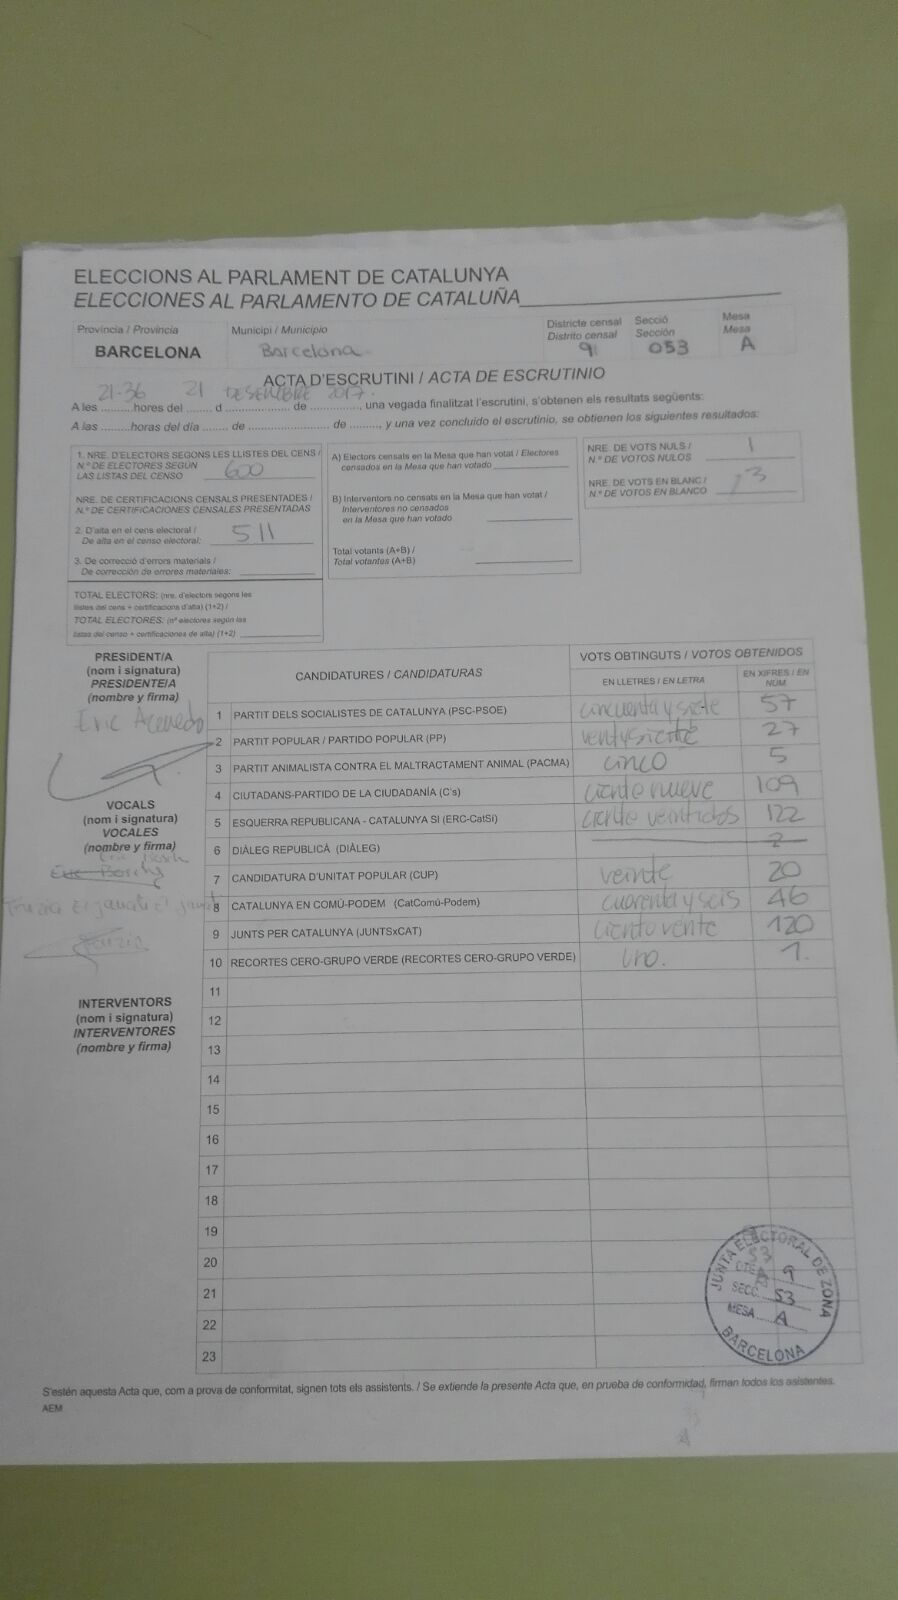 ELECCIONS AL PARLAMENT DE CATALUNYA
ELECCIONES AL PARLAMENTO DE CATALUÑA
Província / Provincia
BARCELONA
Municipi / Municipio
Barcelona
Districte censal
Distrito censal
9
Secció
Sección
053
Mesa
Mesa
A
ACTA D'ESCRUTINI / ACTA DE ESCRUTINIO
21-36 21 DESEMBRE 2017.
A les ..........hores del ........ d .................... de ..............., una vegada finalitzat l'escrutini, s'obtenen els resultats següents:
A las .........horas del día ....... de .......................... de .........., y una vez concluido el escrutinio, se obtienen los siguientes resultados:
1. NRE. D'ELECTORS SEGONS LES LLISTES DEL CENS /
N.º DE ELECTORES SEGÚN
LAS LISTAS DEL CENSO 600
NRE. DE CERTIFICACIONS CENSALS PRESENTADES /
N.º DE CERTIFICACIONES CENSALES PRESENTADAS
2. D'alta en el cens electoral /
De alta en el censo electoral: 511
3. De correcció d'errors materials /
De corrección de errores materiales:
TOTAL ELECTORS: (nre. d'electors segons les
llistes del cens + certificacions d'alta) (1+2) /
TOTAL ELECTORES: (nº electores según las
listas del censo + certificaciones de alta) (1+2)
A) Electors censats en la Mesa que han votat / Electores
censados en la Mesa que han votado
B) Interventors no censats en la Mesa que han votat /
Interventores no censados
en la Mesa que han votado
Total votants (A+B) /
Total votantes (A+B)
NRE. DE VOTS NULS /
N.º DE VOTOS NULOS 1
NRE. DE VOTS EN BLANC /
N.º DE VOTOS EN BLANCO 13
PRESIDENT/A
(nom i signatura)
PRESIDENTE/A
(nombre y firma)
Eric Acevedo
VOCALS
(nom i signatura)
VOCALES
(nombre y firma)
Eric Bosch
Eric Bosch
Fauzia El
Fauzia
INTERVENTORS
(nom i signatura)
INTERVENTORES
(nombre y firma)
CANDIDATURES / CANDIDATURAS
VOTS OBTINGUTS / VOTOS OBTENIDOS
EN LLETRES / EN LETRA
EN XIFRES / EN NÚM.
1 PARTIT DELS SOCIALISTES DE CATALUNYA (PSC-PSOE) cincuenta y siete 57
2 PARTIT POPULAR / PARTIDO POPULAR (PP) 27
3 PARTIT ANIMALISTA CONTRA EL MALTRACTAMENT ANIMAL (PACMA) cinco 5
4 CIUTADANS-PARTIDO DE LA CIUDADANÍA (C's) ciento nueve 109
5 ESQUERRA REPUBLICANA - CATALUNYA SÍ (ERC-CatSí) ciento veintidos 122
6 DIÀLEG REPUBLICÀ (DIÀLEG)
7 CANDIDATURA D'UNITAT POPULAR (CUP) veinte 20
8 CATALUNYA EN COMÚ-PODEM (CatComú-Podem) cuarenta y seis 46
9 JUNTS PER CATALUNYA (JUNTSxCAT) ciento vente 120
10 RECORTES CERO-GRUPO VERDE (RECORTES CERO-GRUPO VERDE) Uno. 1.
11
12
13
14
15
16
17
18
19
20
21
22
23
JUNTA ELECTORAL DE ZONA
53
DTE. 9
SECC. 53
MESA A
BARCELONA
S'estén aquesta Acta que, com a prova de conformitat, signen tots els assistents. / Se extiende la presente Acta que, en prueba de conformidad, firman todos los asistentes.
AEM